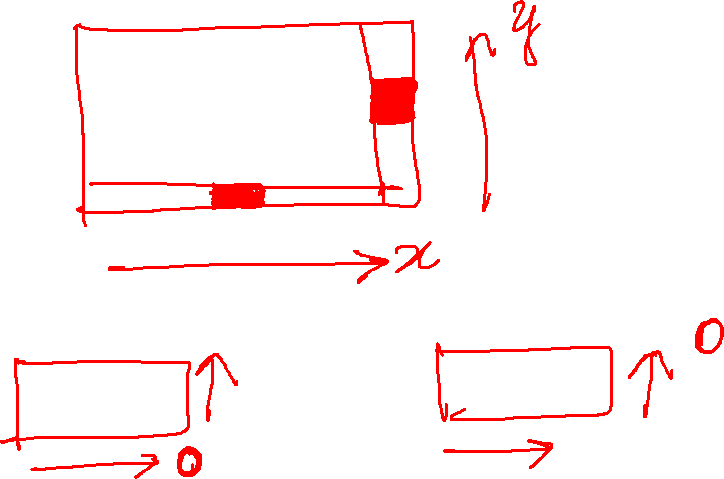 y
x
0
0